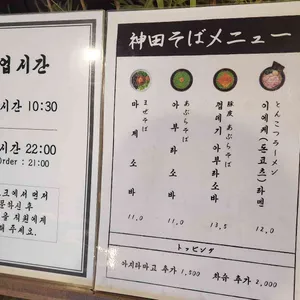 업시간
시간 10:30
시간 22:00
order : 21:00
크에서 먼저
문하신 후
을 직원에게
해 주세요.
神田そばメニュー
まぜそば
마제소바
11.0
あぶらそば
아부라소바
11.0
豚皮 あぶらそば
껍데기 아부라소바
13.5
とんこつラーメン
이에케(돈코츠)라멘
12.0
トッピング
아지타마고 추가 1,500
차슈 추가 2,000